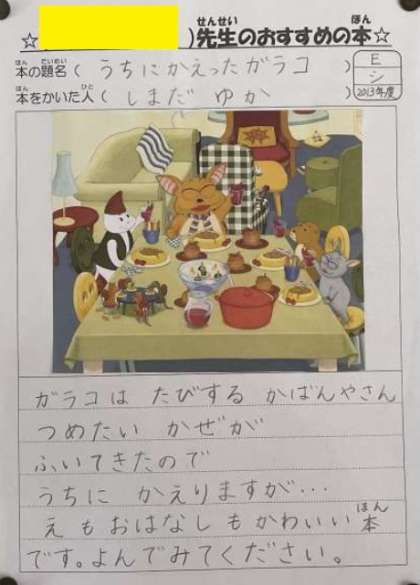 ☆ )先生のおすすめの本☆
せんせい ほん
本の題名(うちにかえったガラコ)
ほん だいめい
本をかいた人(しまだ ゆか)
ほん ひと
E
シ
2013年度
ガラコは たびする かばんやさん
つめたい かぜが
ふいてきたので
うちに かえりますが…
え も おはなし も かわいい 本
ほん
です。よんでみてください。